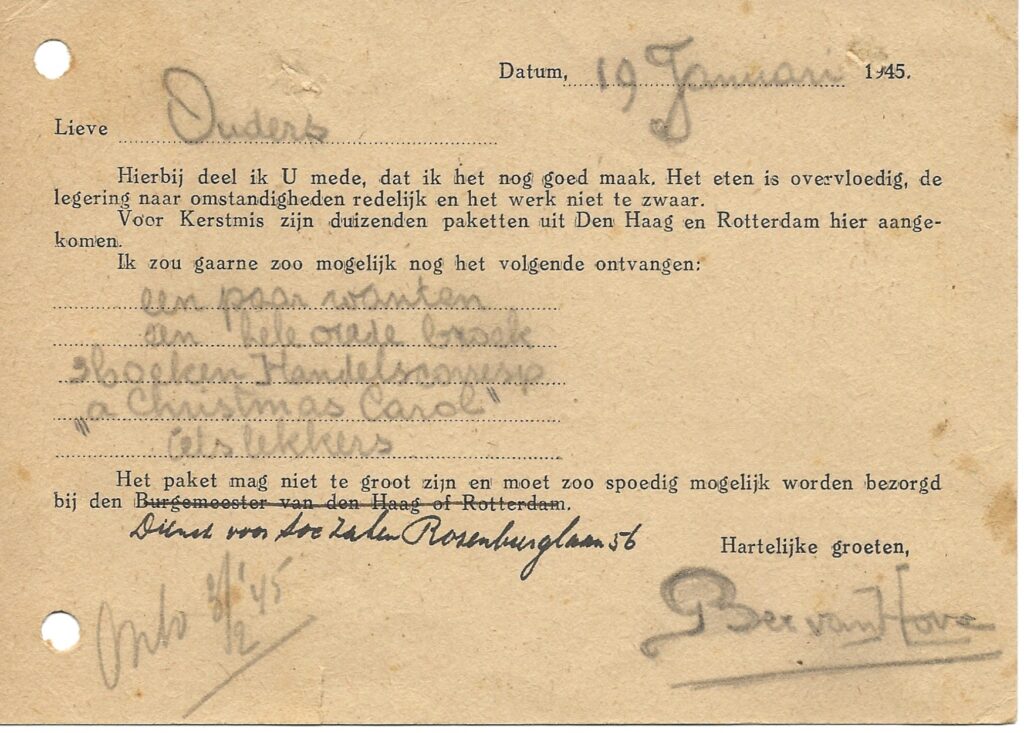 Datum, 19 Januari 1945.
Lieve Ouders
Hierbij deel ik U mede, dat ik het nog goed maak. Het eten is overvloedig, de
legering naar omstandigheden redelijk en het werk niet te zwaar.
Voor Kerstmis zijn duizenden paketten uit Den Haag en Rotterdam hier aange-
komen.
Ik zou gaarne zoo mogelijk nog het volgende ontvangen:
een paar wanten
een hele oude broek
boeken Handelscorresp
"a Christmas Carol"
iets lekkers
Het paket mag niet te groot zijn en moet zoo spoedig mogelijk worden bezorgd
bij den Burgemeester van den Haag of Rotterdam.
Dienst voor Soc Zaken Rosenburglaan 56
Hartelijke groeten,
3/2 '45
Ber van Hove